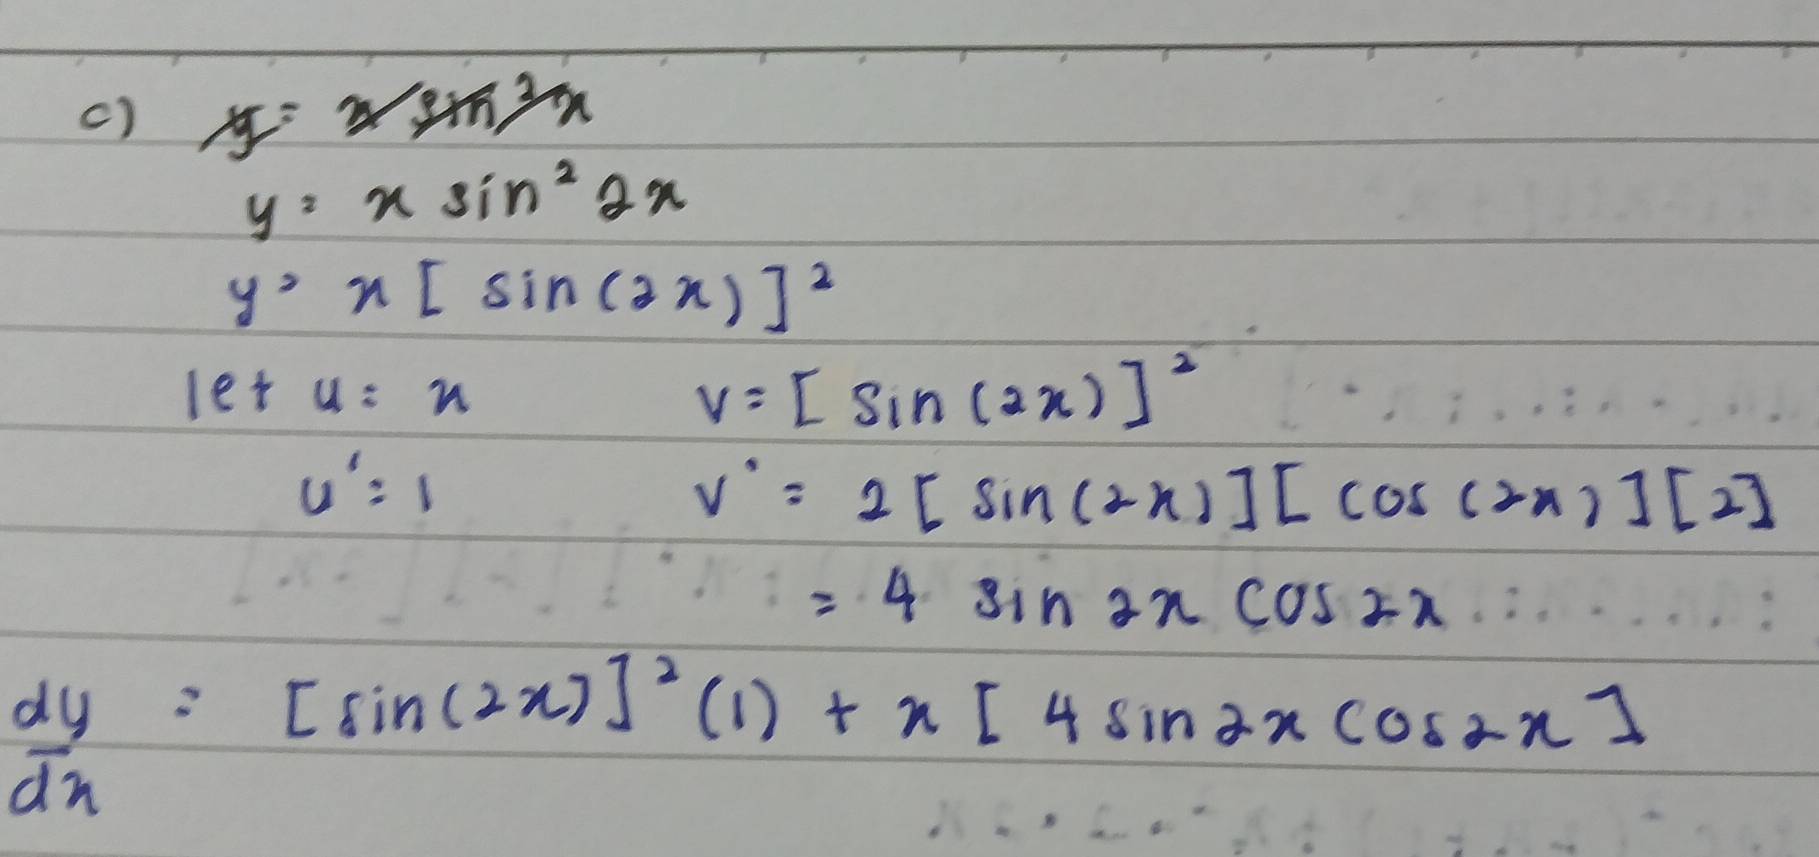 c) y = x sin² x
y = x sin² 2x
y = x [ sin (2x) ]²
let u = x v = [ sin (2x) ]²
u' = 1 v' = 2 [ sin (2x) ] [ cos (2x) ] [2]
= 4 sin 2x cos 2x
dy/dx = [sin (2x)]² (1) + x [ 4 sin 2x cos 2x ]